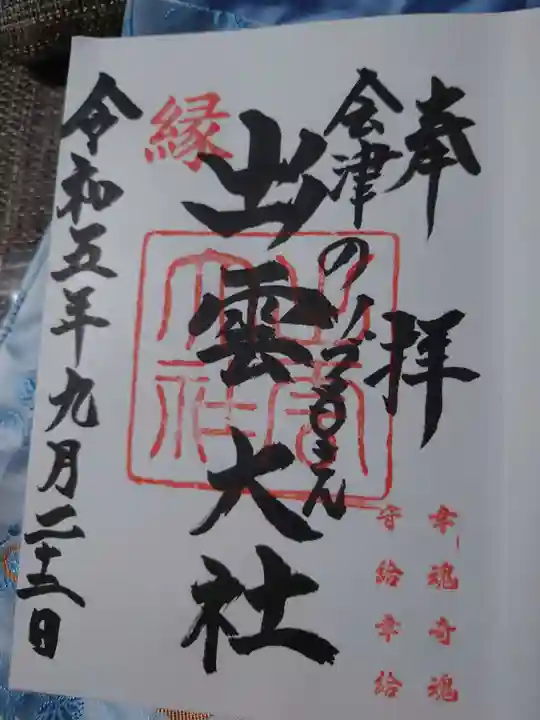 奉拝
会津のイズモさん
出雲大社
縁
令和五年九月二十三日
幸魂奇魂
守給幸給